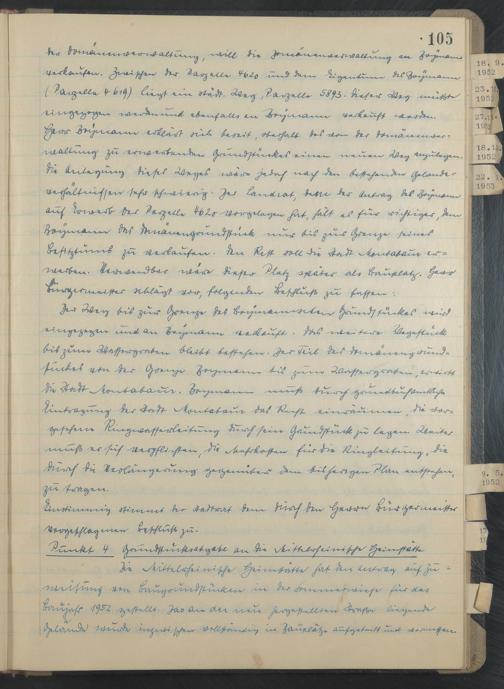 105
der Domänenverwaltung, will die Domänenverwaltung an Beymann
verkaufen. Zwischen der Parzelle 4620 und dem Eigentum des Beymann
(Parzelle 4619) liegt ein städt. Weg, Parzelle 5893. Dieser Weg müßte
eingezogen werden und ebenfalls an Beymann verkauft werden.
Herr Beymann erklärt sich bereit, oberhalb des von der Domänenver-
waltung zu erwerbenden Grundstückes einen neuen Weg anzulegen.
Die Anlegung dieses Weges wäre jedoch nach den bestehenden Gelände-
verhältnissen sehr schwierig. Der Landrat, dem der Antrag des Beymann
auf Erwerb der Parzelle 4620 vorgelegen hat, hält es für richtiger, dem
Beymann das Domänengrundstück nur bis zur Grenze seines
Besitztums zu verkaufen. Den Rest soll die Stadt Montabaur er-
werben. Verwendbar wäre dieser Platz später als Bauplatz. Herr
Bürgermeister schlägt vor, folgenden Beschluß zu fassen:
Der Weg bis zur Grenze des Beymann'schen Grundstückes wird
eingezogen und an Beymann verkauft. Das weitere Wegestück
bis zum Wassergraben bleibt bestehen. Der Teil des Domänengrund-
stückes von der Grenze Beymann bis zum Wassergraben, erwirbt
die Stadt Montabaur. Beymann muß durch grundbuchamtliche
Eintragung der Stadt Montabaur das Recht einräumen, die vor-
gesehene Ringwasserleitung durch sein Grundstück zu legen. Weiter
muß er sich verpflichten, die Mehrkosten für die Ringleitung, die
durch die Verlängerung gegenüber dem bisherigen Plan entstehen,
zu tragen.
Einstimmig stimmt der Stadtrat dem durch den Herrn Bürgermeister
vorgeschlagenen Beschluß zu.
Punkt 4 Grundstücksabgabe an die Mittelrheinische Heimstätte
Die Mittelrheinische Heimstätte hat den Antrag auf Zu-
weisung von Baugrundstücken in der Sommerwiese für das
Baujahr 1952 gestellt. Das an der neu hergestellten Straße liegende
Gelände wurde inzwischen vollständig in Bauplätze aufgeteilt und vermessen
18. 9.
1952
23.
1952
18.
1952
22.
1953
9. 5.
1952